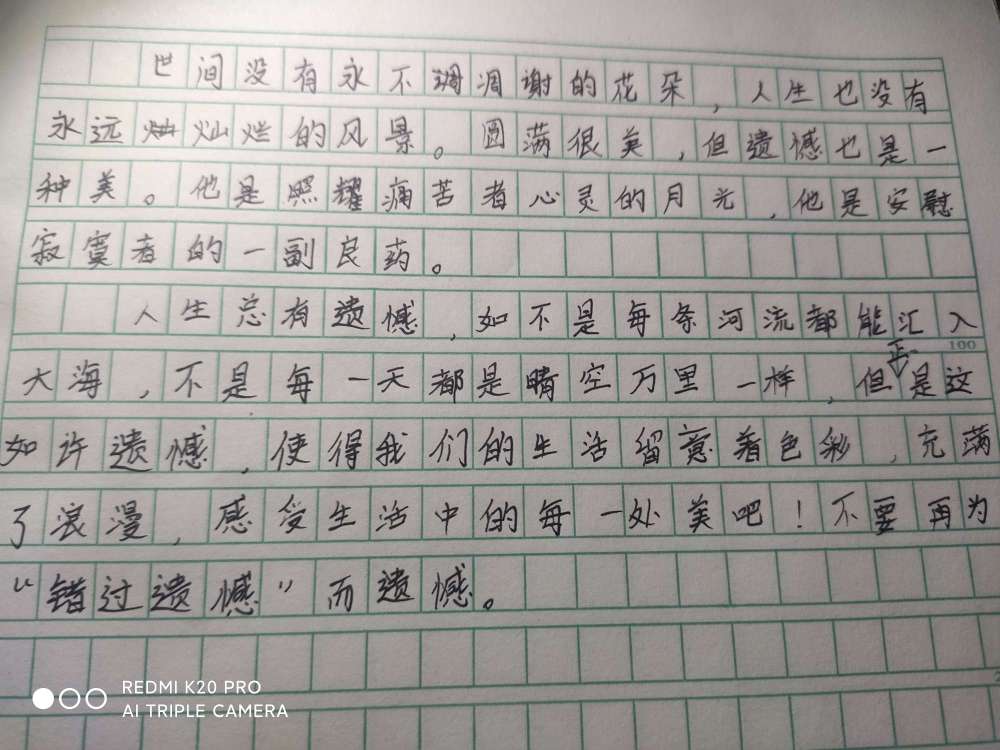 世间没有永不凋谢的花朵，人生也没有
永远灿烂的风景。圆满很美，但遗憾也是一
种美。他是照耀痛苦者心灵的月光，他是安慰
寂寞者的一副良药。
人生总有遗憾，如不是每条河流都能汇入
100
大海，不是每一天都是晴空万里一样，但正是这
如许遗憾，使得我们的生活留意着色彩，充满
了浪漫，感受生活中的每一处美吧！不要再为
“错过遗憾”而遗憾。
REDMI K20 PRO
AI TRIPLE CAMERA